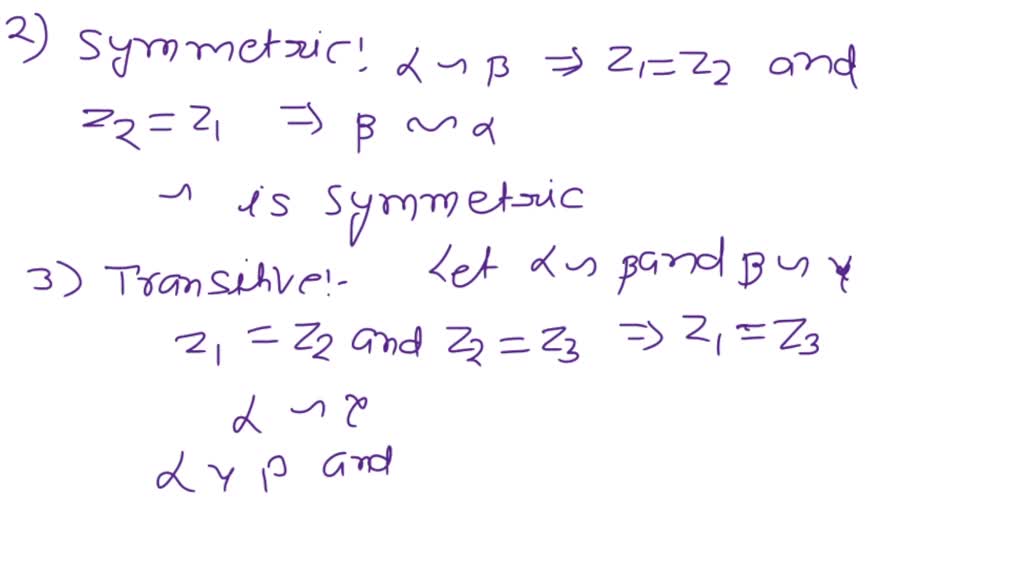 2) Symmetric! α ∽ β ⇒ Z1 = Z2 and
Z2 = Z1 ⇒ β ∽ α
∽ is Symmetric
3) Transitive!- Let α ∽ β and β ∽ γ
Z1 = Z2 and Z2 = Z3 ⇒ Z1 = Z3
α ∽ γ
α γ β and